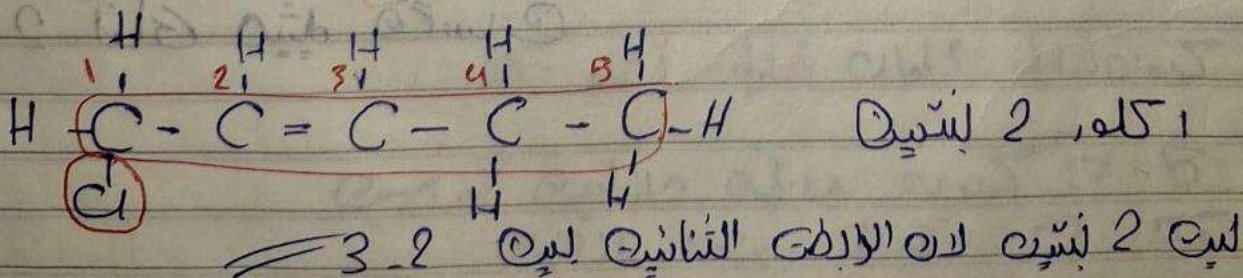 H H H H H
1 2 3 4 5
H - C - C = C - C - C - H 1 كلور 2 بنتين
Cl H H
ليه 2 بنتين لان الرابطه الثنائيه بين 2-3